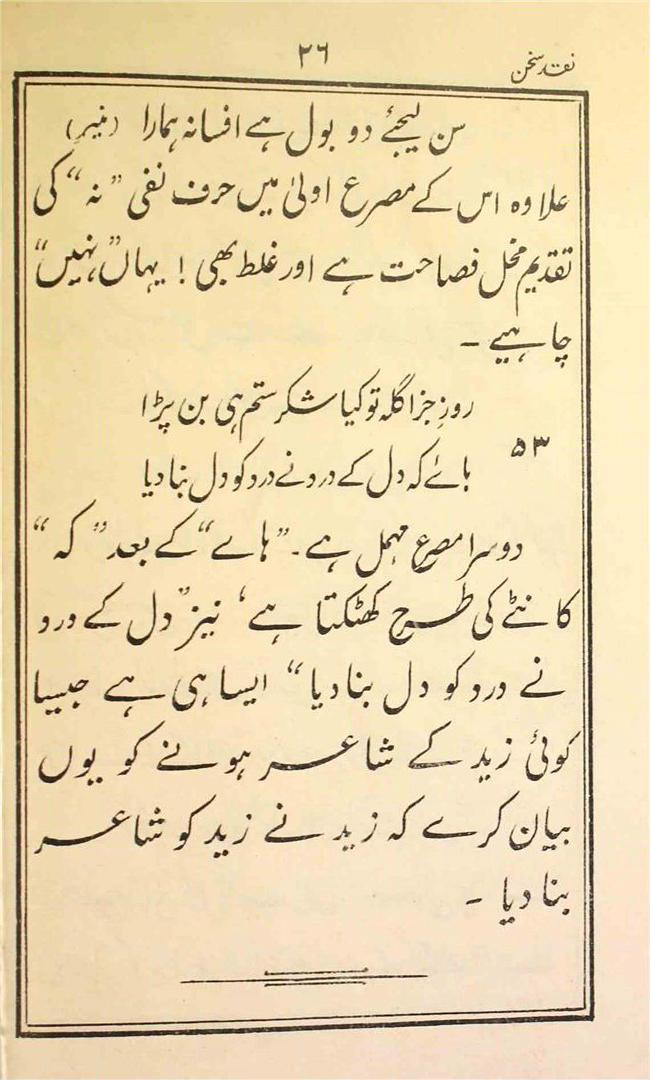 نقد سخن
۲۶
سن لیجئے دو بول ہے افسانہ ہمارا (منیر)
علاوہ اس کے مصرع اولیٰ میں حرف نفی ”نہ“ کی
تقدیم مخل فصاحت ہے اور غلط بھی! یہاں ”نہیں“
چاہیے ۔
روزِ جزا گلہ تو کیا شکر ستم ہی بن پڑا
۵۳
ہائے کہ دل کے درد نے درد کو دل بنا دیا
دوسرا مصرع مہمل ہے۔ ”ہاے“ کے بعد ”کہ“
کانٹے کی طرح کھٹکتا ہے، نیز ”دل کے درد
نے درد کو دل بنا دیا“ ایسا ہی ہے جیسا
کوئی زید کے شاعر ہونے کو یوں
بیان کرے کہ زید نے زید کو شاعر
بنا دیا ۔